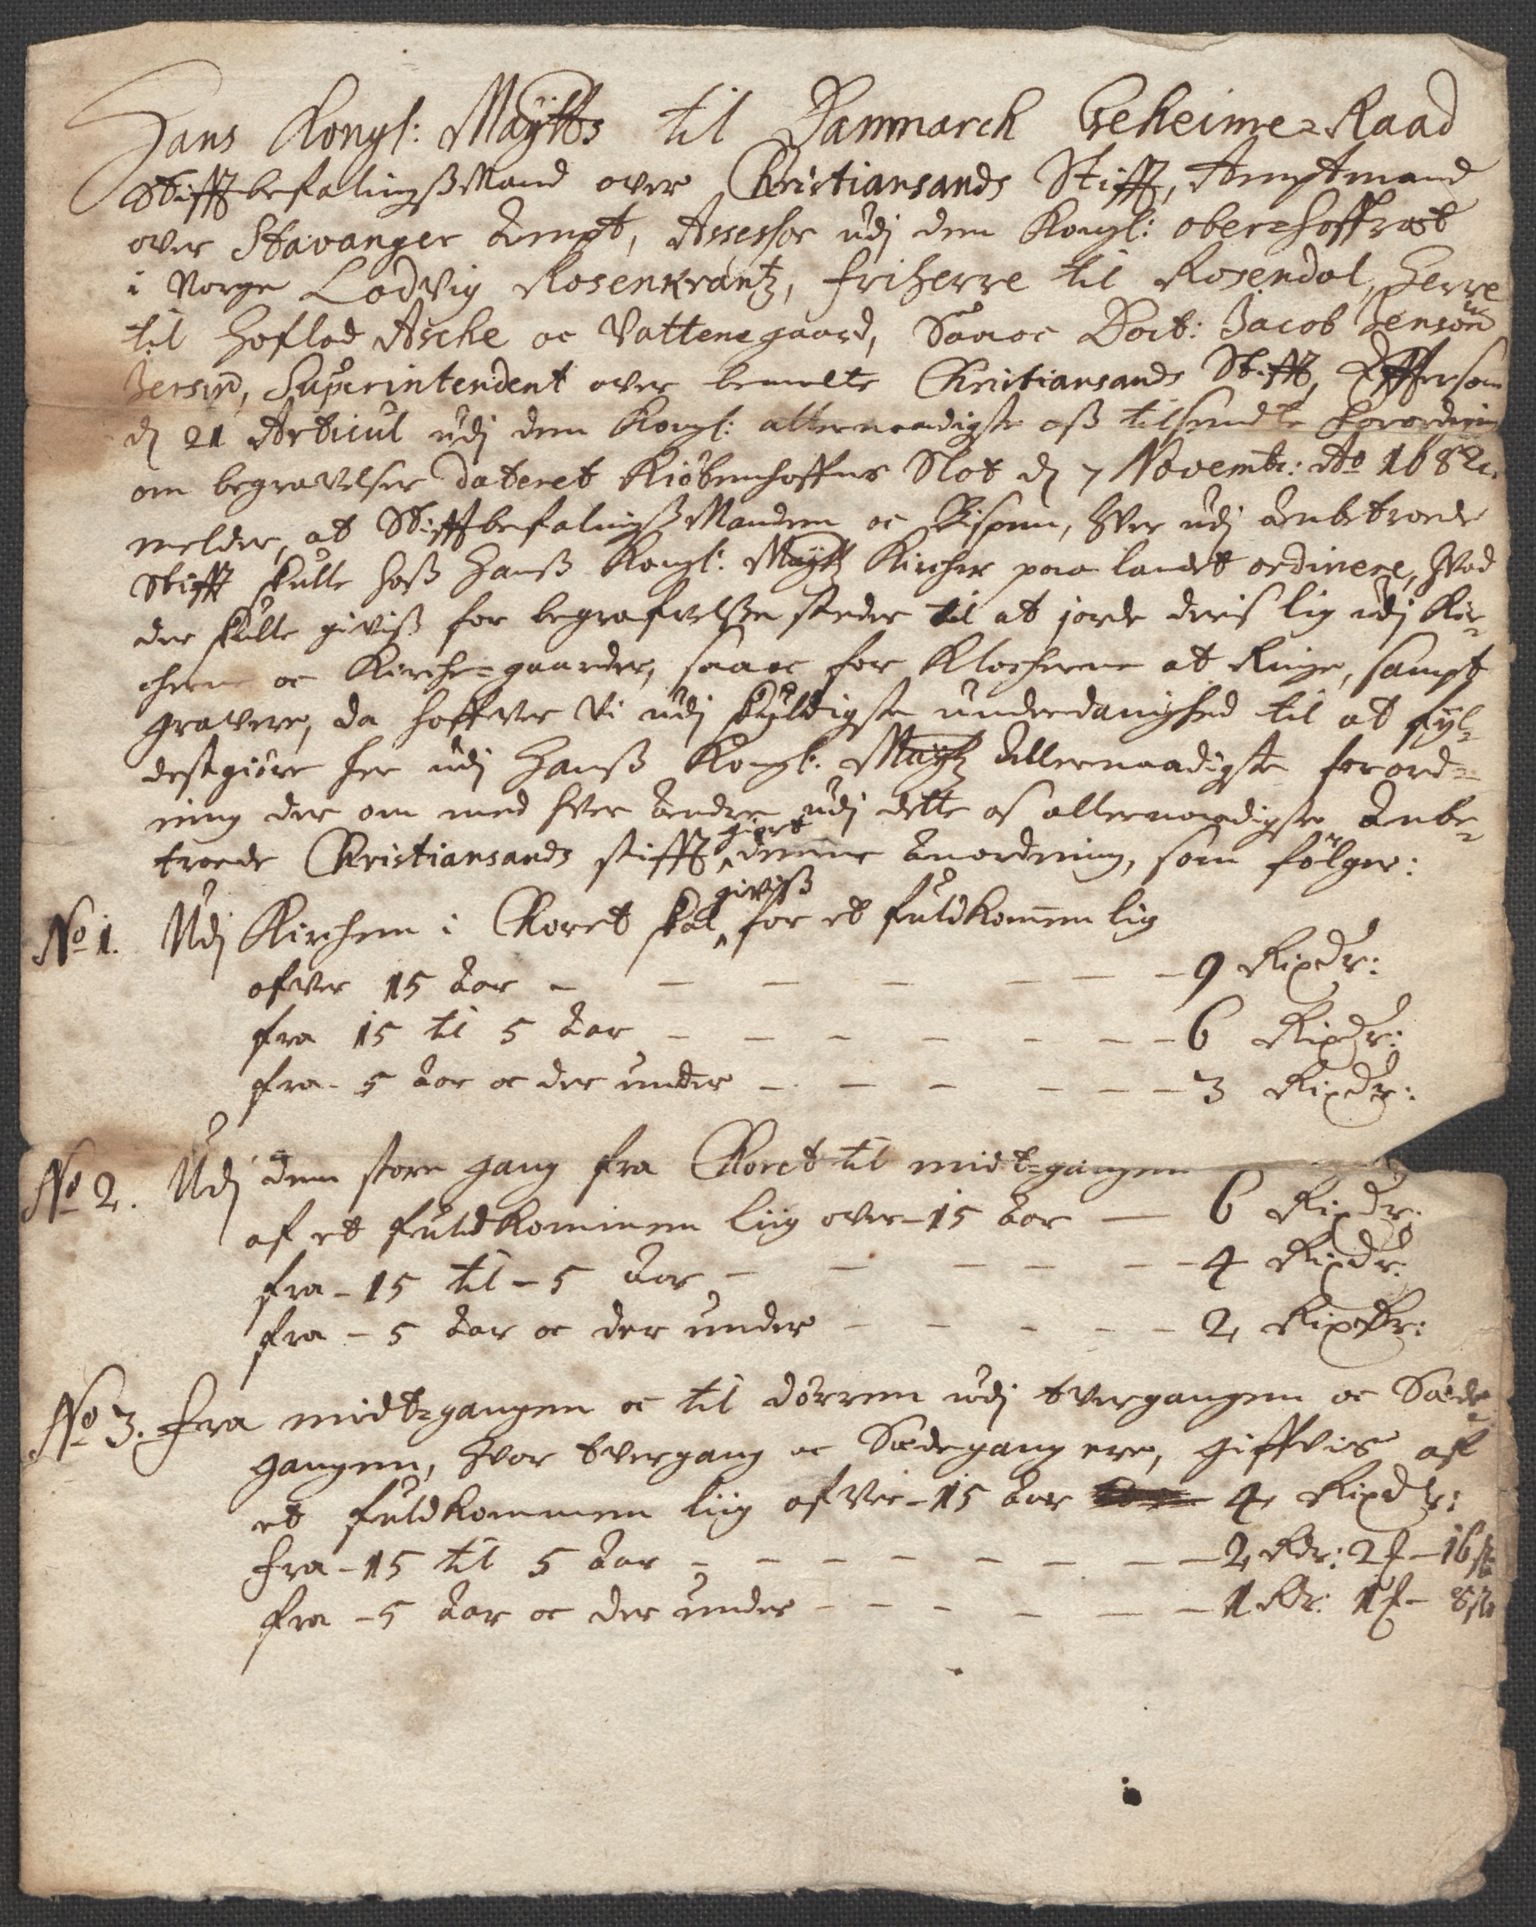 Hans Kongl: Maÿtts til Danmarck Geheime-Raad
Stifftbefalingßmand over Christiansands Stifft, Amptmand
over Stavanger Ampt, Assessor udj den Kongl: ober-hoffræt
i Norge Lodvig Rosenkrantz, friherre til Rosendal, Herre
til Hoflad Asche oc Vattne gaard, Saa oc Doct: Jacob Jensøn
Jersin, Superintendent over bemelte Christiansands Stifft, Efftersom
dj 21 Articul udj den Kongl: allernaadigste oß tilsendte forordning
om begravelser dateret Kiøbenhaffns Slot dj 7 Novemb: Ao 1682.
melder, at Stifftbefalingßmanden oc Bispen, hver udj Anbetroede
Stifft skulle hoß Hanß Kongl: Maÿtz Kircher paa landet ordinere, hvad
der skulle giviß for begrafvelße steder til at jorde deris lig udj Kir-
cherne oc Kirche-gaarder, saa oc for Klocherne at Ringe, sampt
gravere, da hoffver vi udj skyldigste underdanighed til at fyl-
destgiøre her udj Hanß Kongl: Maÿtz Allernaadigste forord-
ning der om med hver Andre udj dette os allernaadigste Anbe-
troede Christiansands stifft giort denne Anordning, som følger:
No 1. Udj Kirchen i Choret skal giviß for et fuldkommen lig
ofver 15 Aar - - - - - - 9 Rixdr:
fra 15 til 5 Aar - - - - - - 6 Rixdr:
fra - 5 Aar oc der under - - - - - 3 Rixdr:
No 2. Udj den store gang fra Choret til midt-gangen
af et fuldkommen liig over - 15 Aar - 6 Rixdr:
fra - 15 til - 5 Aar - - - - - - 4 Rixdr:
fra - 5 Aar oc der under - - - - - 2 Rixdr:
No 3. fra midt-gangen oc til dørren udj tvergangen oc Sæde-
gangen, hvor tvergang oc Sædegang ere, giffvis af
et fuldkommen liig ofver - 15 Aar 4 Rixdr:
fra - 15 til 5 Aar - - - - - - - 2 Rdr: 2 f - 16 ß
fra - 5 Aar oc der under - - - - - 1 Rdr: 1 f - 8 ß